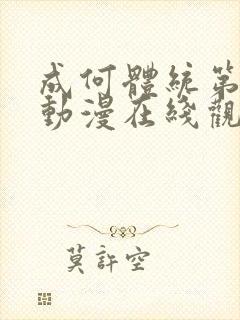 成何體統第
動漫在綫觀
莫許空